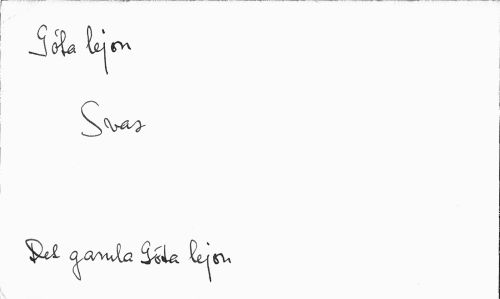 Göta lejon
Svar
Det gamla Göta lejon